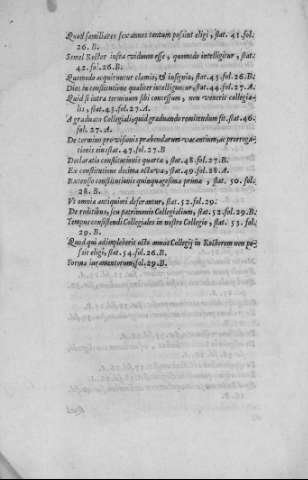 Quod familiares sex annos tantum possint eligi, stat. 41. fol.
26. B.
Semel Rector iusta videum esse, quomodo intelligitur, stat.
42. fol. 26. B.
Quomodo acquiruntur clamis, & insignia, stat. 43. fol. 26. B.
Dies in constitutione qualiter intelligantur, stat. 44. fol. 27. A.
Quid si intra terminum sibi concessum, non venerit collegia-
lis, stat. 45. fol. 27. A.
A graduum Collegiali, quid graduando remittendum sit. stat. 46.
fol. 27. A.
De termino provisionis præbendarum vacantium, ac proroga-
tionis eius stat. 47. fol. 27. B
Declaratio constitutionis quarta, stat. 48. fol. 27. B.
Ex constitutione decima octava, stat. 49. fol. 28. A.
Recensio constitutionis quinquagesima prima, stat. 50. fol.
28. B.
Vt omnia antiquiori deferantur, stat. 52. fol. 29.
De reditibus, seu patrimonio Collegialium, stat. 52. fol. 29. B.
Tempus consistendi Collegiales in nostro Collegio, stat. 53. fol.
29. B.
Quod qui adimpleverit octo annos Collegij in Rectorem non pos-
sit eligi, stat. 54. fol. 26. B.
Forma iuramentorum, fol. 29. B.